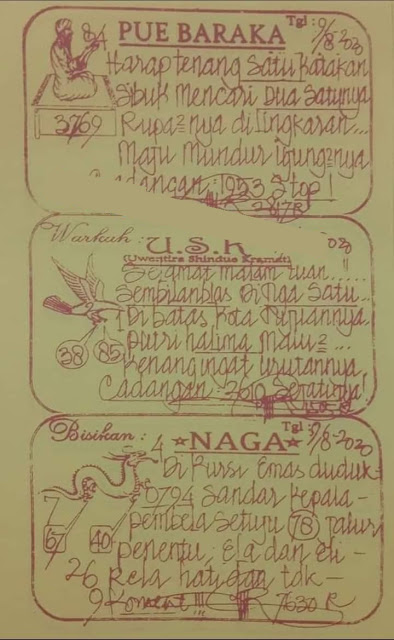 PUE BARAKA Tgl: 9/8-2020
84
Harap tenang satu katakan
Sibuk Mencari Dua Satunya
3769 Rupa2nya di lingkaran...
Maju Mundur
Cadangan: 1953 Stop!
2817 R
Warkah: U.S.K
(Uwentira Shindue Kramat)
Selamat malam tuan.....
Sembilanblas Di Nga Satu...
Di batas Kota
Putri halima Malu2...
38 85
Kenang ingat urutannya
Cadangan: 3610
Bisikan: NAGA Tgl: 9/8-2020
4
Di Kursi Emas duduk-
7 0794 Sandar kepala-
pembela Setuju 78
67 40 penentu, Ela dan eli-
26 Rela hati dan tak-
9 Koment!!! 7630 R